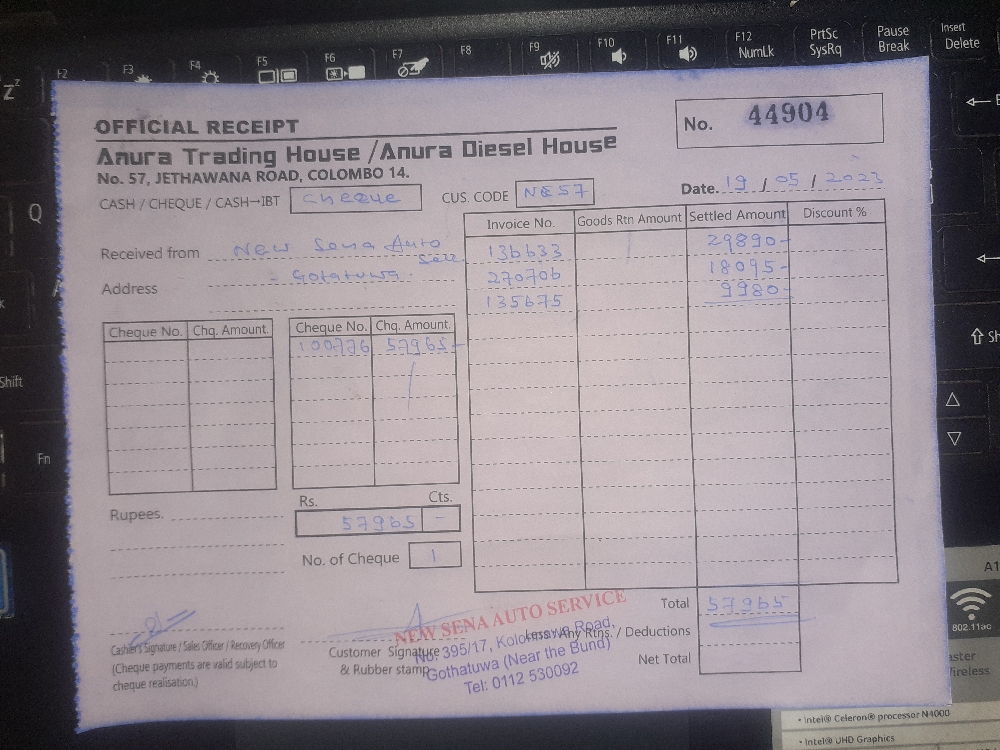 F2 F3 F4 F5 F6 F7 F8 F9 F10 F11 F12 NumLk PrtSc SysRq Pause Break Insert Delete
Q
Shift
Fn
OFFICIAL RECEIPT
No. 44904
Anura Trading House /Anura Diesel House
No. 57, JETHAWANA ROAD, COLOMBO 14.
Date. 19 / 05 / 2023
CASH / CHEQUE / CASH→IBT cheque CUS. CODE NE57
Invoice No. Goods Rtn Amount Settled Amount Discount %
136633 29890-
270706 18095-
135675 9980-
Received from New Sena Auto
Address - Gotatuwa.
Cheque No. Chq. Amount Cheque No. Chq. Amount
100776 57965-
Rupees.
Rs. Cts.
57965 -
No. of Cheque 1
Total 57965
Less: Any Rtns. / Deductions
Net Total
Cashier's Signature / Sales Officer / Recovery Officer
(Cheque payments are valid subject to
cheque realisation.)
Customer Signature
& Rubber stamp
NEW SENA AUTO SERVICE
No: 395/17, Kolonnawa Road,
Gothatuwa (Near the Bund)
Tel: 0112 530092
802.11ac
• Intel® Celeron® processor N4000
• Intel® UHD Graphics